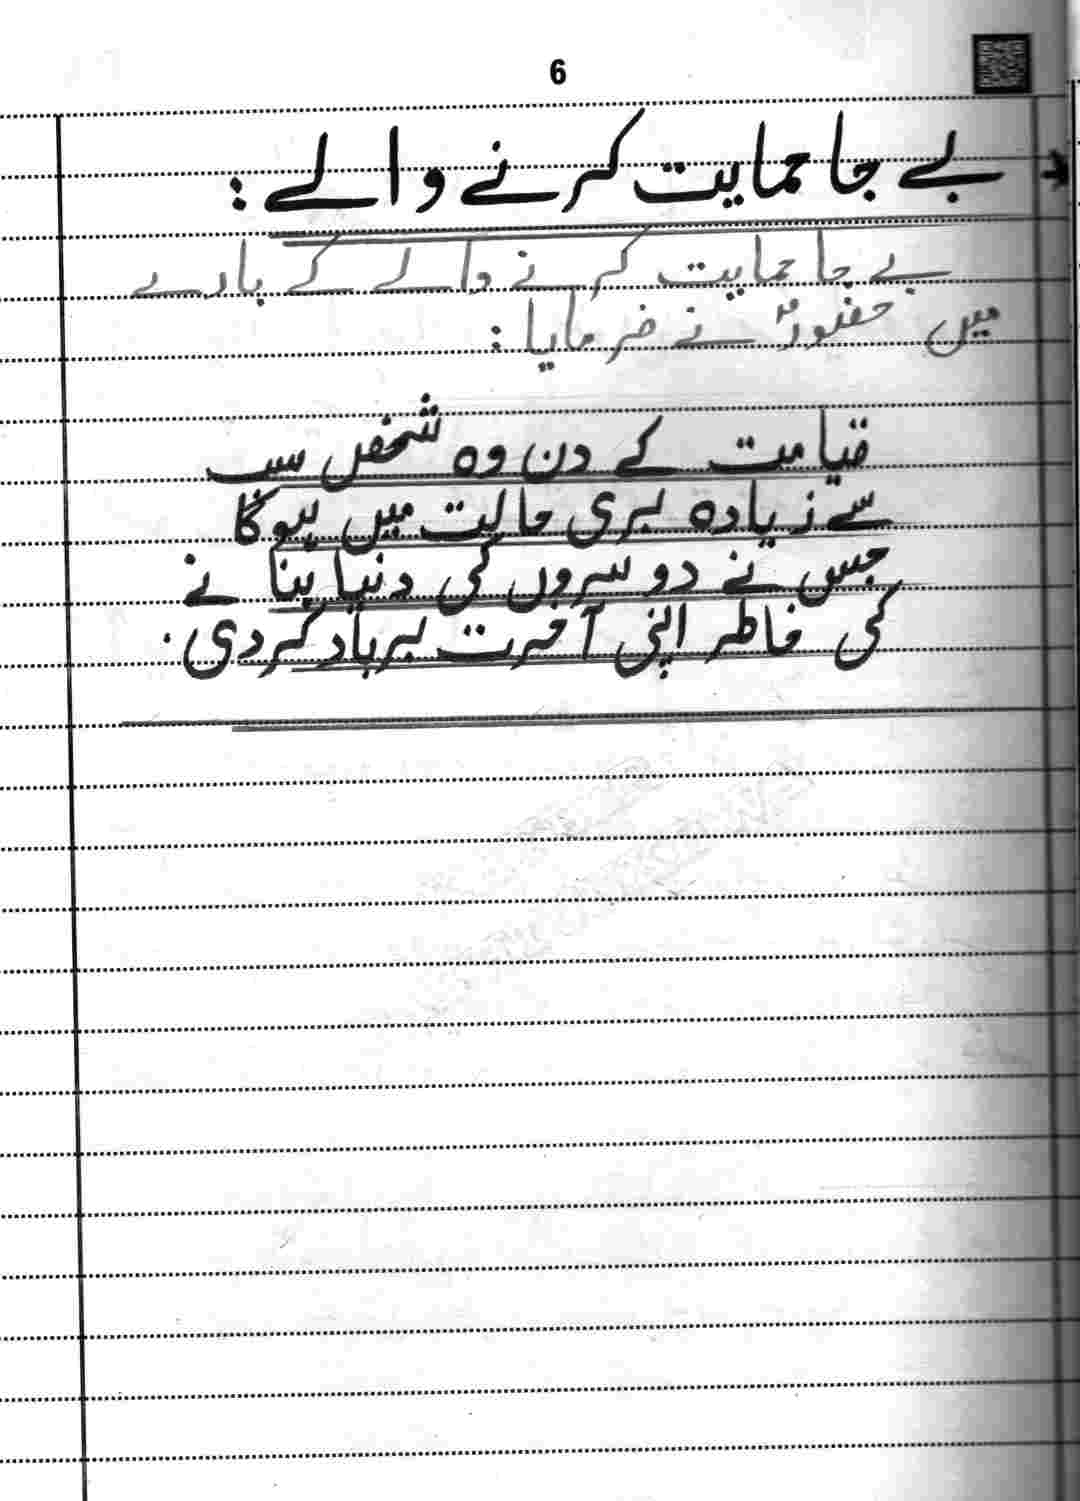 6
بے جا حمایت کرنے والے :
بے جا حمایت کرنے والے کے بارے
میں حضورؐ نے فرمایا :
قیامت کے دن وہ شخص سب
سے زیادہ بری حالت میں ہوگا
جس نے دوسروں کی دنیا بنانے
کی خاطر اپنی آخرت برباد کردی .